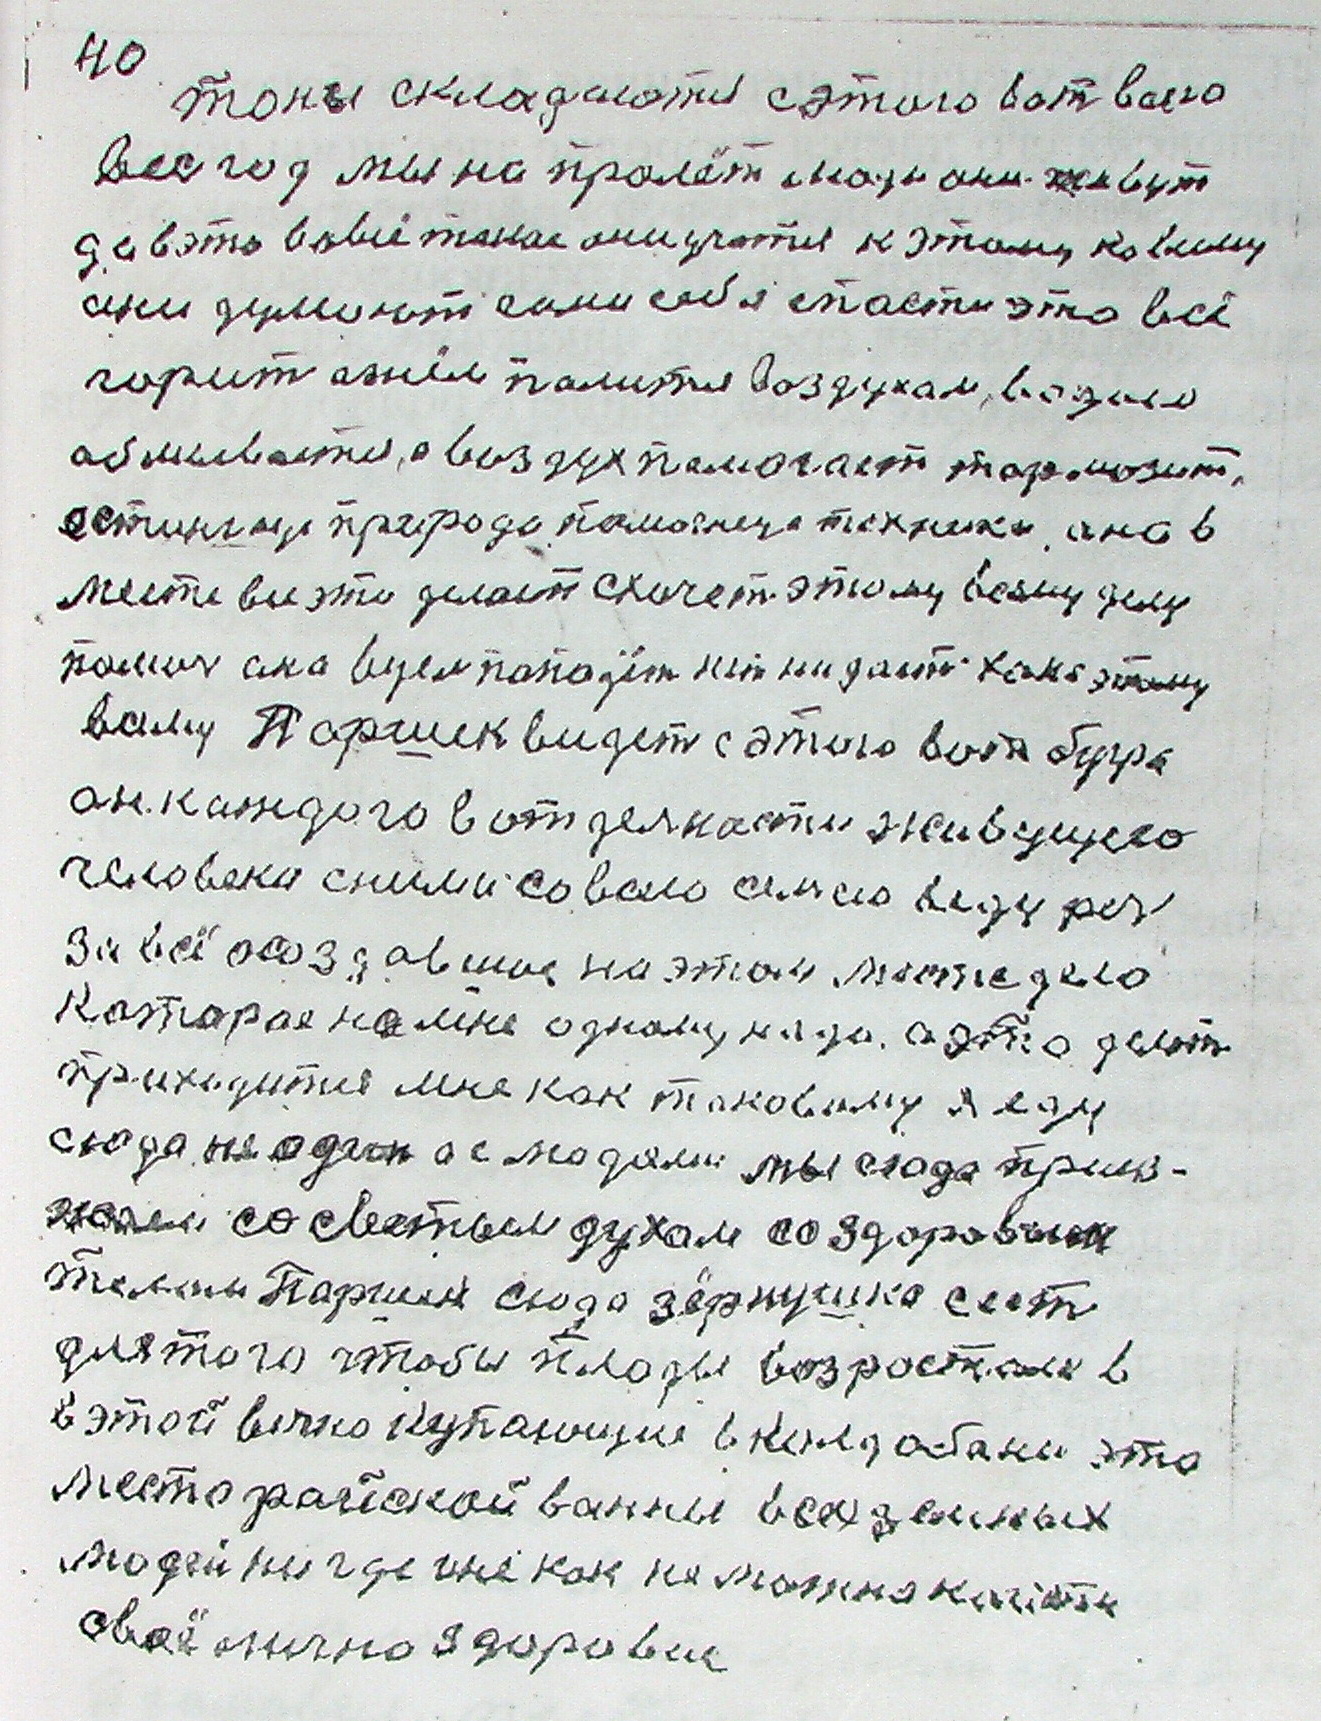 40
тоны складаются сэтого вот всего
вес год мы на пролёт люди они живут
да вэто время такое они учатся к этому ко всему
они думают сами себя спасти это всё
горит огнём палится воздухам, водою
обмывается, а воздух помогает тормозит,
природа помошница техники, она в
месте все это делает схочет этому всему делу
помоч она нет ни дает хана этому
всему Паршек видет с этого вот бугра
он каждого вотделности живущего
человека сними со всею семею веду реч
за всё создавшие на этом месте дело
каторае на мне одному надо. а это делат
приходится мне как таковому я еду
сюда не один а с людями мы сюда приез-
жаем со светым духам со здоровым
телом Паршек сюда зёрнушко сеет
для того чтобы плоды возростали в
в этой вечно купающие в колдобани это
место райской ванны всех земных
людей ни где не как не можно
своё лично здоровие